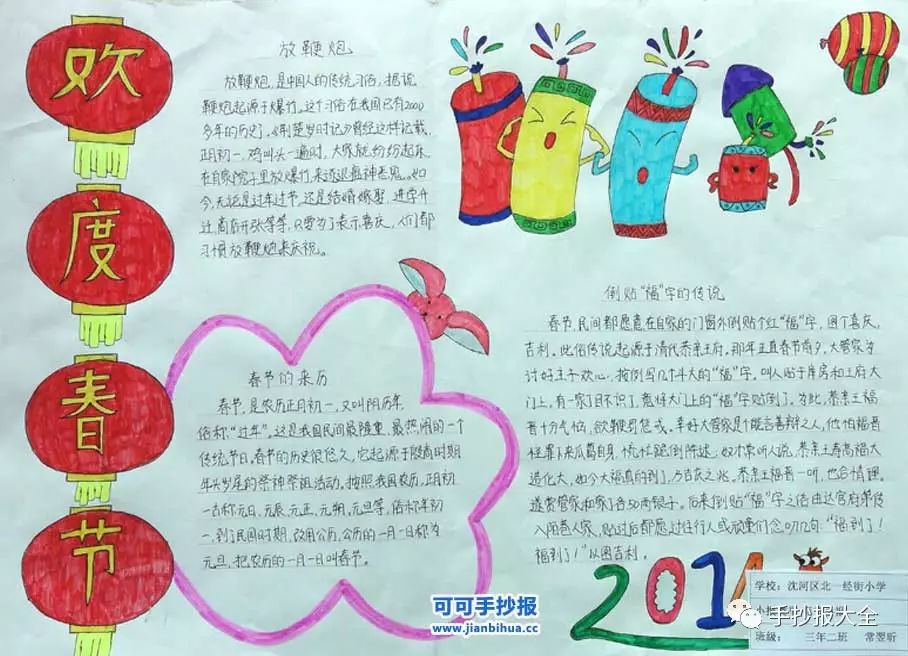 欢
度
春
节
放鞭炮
放鞭炮,是中国人的传统习俗。据说,
鞭炮起源于爆竹。这个习俗在我国已有2000
多年的历史了。《荆楚岁时记》曾经这样记载,
正月初一,鸡叫头一遍时,大家就纷纷起床,
在自家院子里放爆竹,来逐退瘟神恶鬼。如
今,无论是过年过节,还是结婚嫁娶,进学升
迁,商店开张等等,只要为了表示喜庆,人们都
习惯放鞭炮来庆祝。
春节的来历
春节,是农历正月初一,又叫阴历年,
俗称"过年"。这是我国民间最隆重、最热闹的一个
传统节日。春节的历史很悠久,它起源于殷商时期
年头岁尾的祭神祭祖活动。按照我国农历,正月初
一古称元日、元辰、元正、元朔、元旦等,俗称年初
一,到了民国时期,改用公历,公历的一月一日称为
元旦,把农历的一月一日叫春节。
倒贴"福"字的传说
春节,民间都愿意在自家的门窗外倒贴个红"福"字,图个喜庆,
吉利。此俗传说起源于清代恭亲王府。那年正直春节前夕,大管家为
讨好主子欢心,按例写几个斗大的"福"字,叫人贴于库房和王府大
门上,有一家丁目不识丁,竟将大门上的"福"字贴倒了。为此,恭亲王福
晋十分气恼,欲鞭罚惩戒。幸好大管家是个能言善辩之人,他怕福晋
怪罪下来瓜葛自身,慌忙跪倒陈述:奴才常听人说,恭亲王寿高福大
造化大,如今大福真的到了,乃吉庆之兆。恭亲王福晋一听,也合情理,
遂赏管家和家丁各50两银子。后来倒贴"福"字之俗由达官府第传
入陌巷人家,贴过后都愿过往行人或顽童们念叨几句:"福到了!
福到了!"以图吉利。
2014
学校:沈河区北一经街小学
班级: 三年二班 常翌昕
手抄报大全
可可手抄报
www.jianbihua.cc